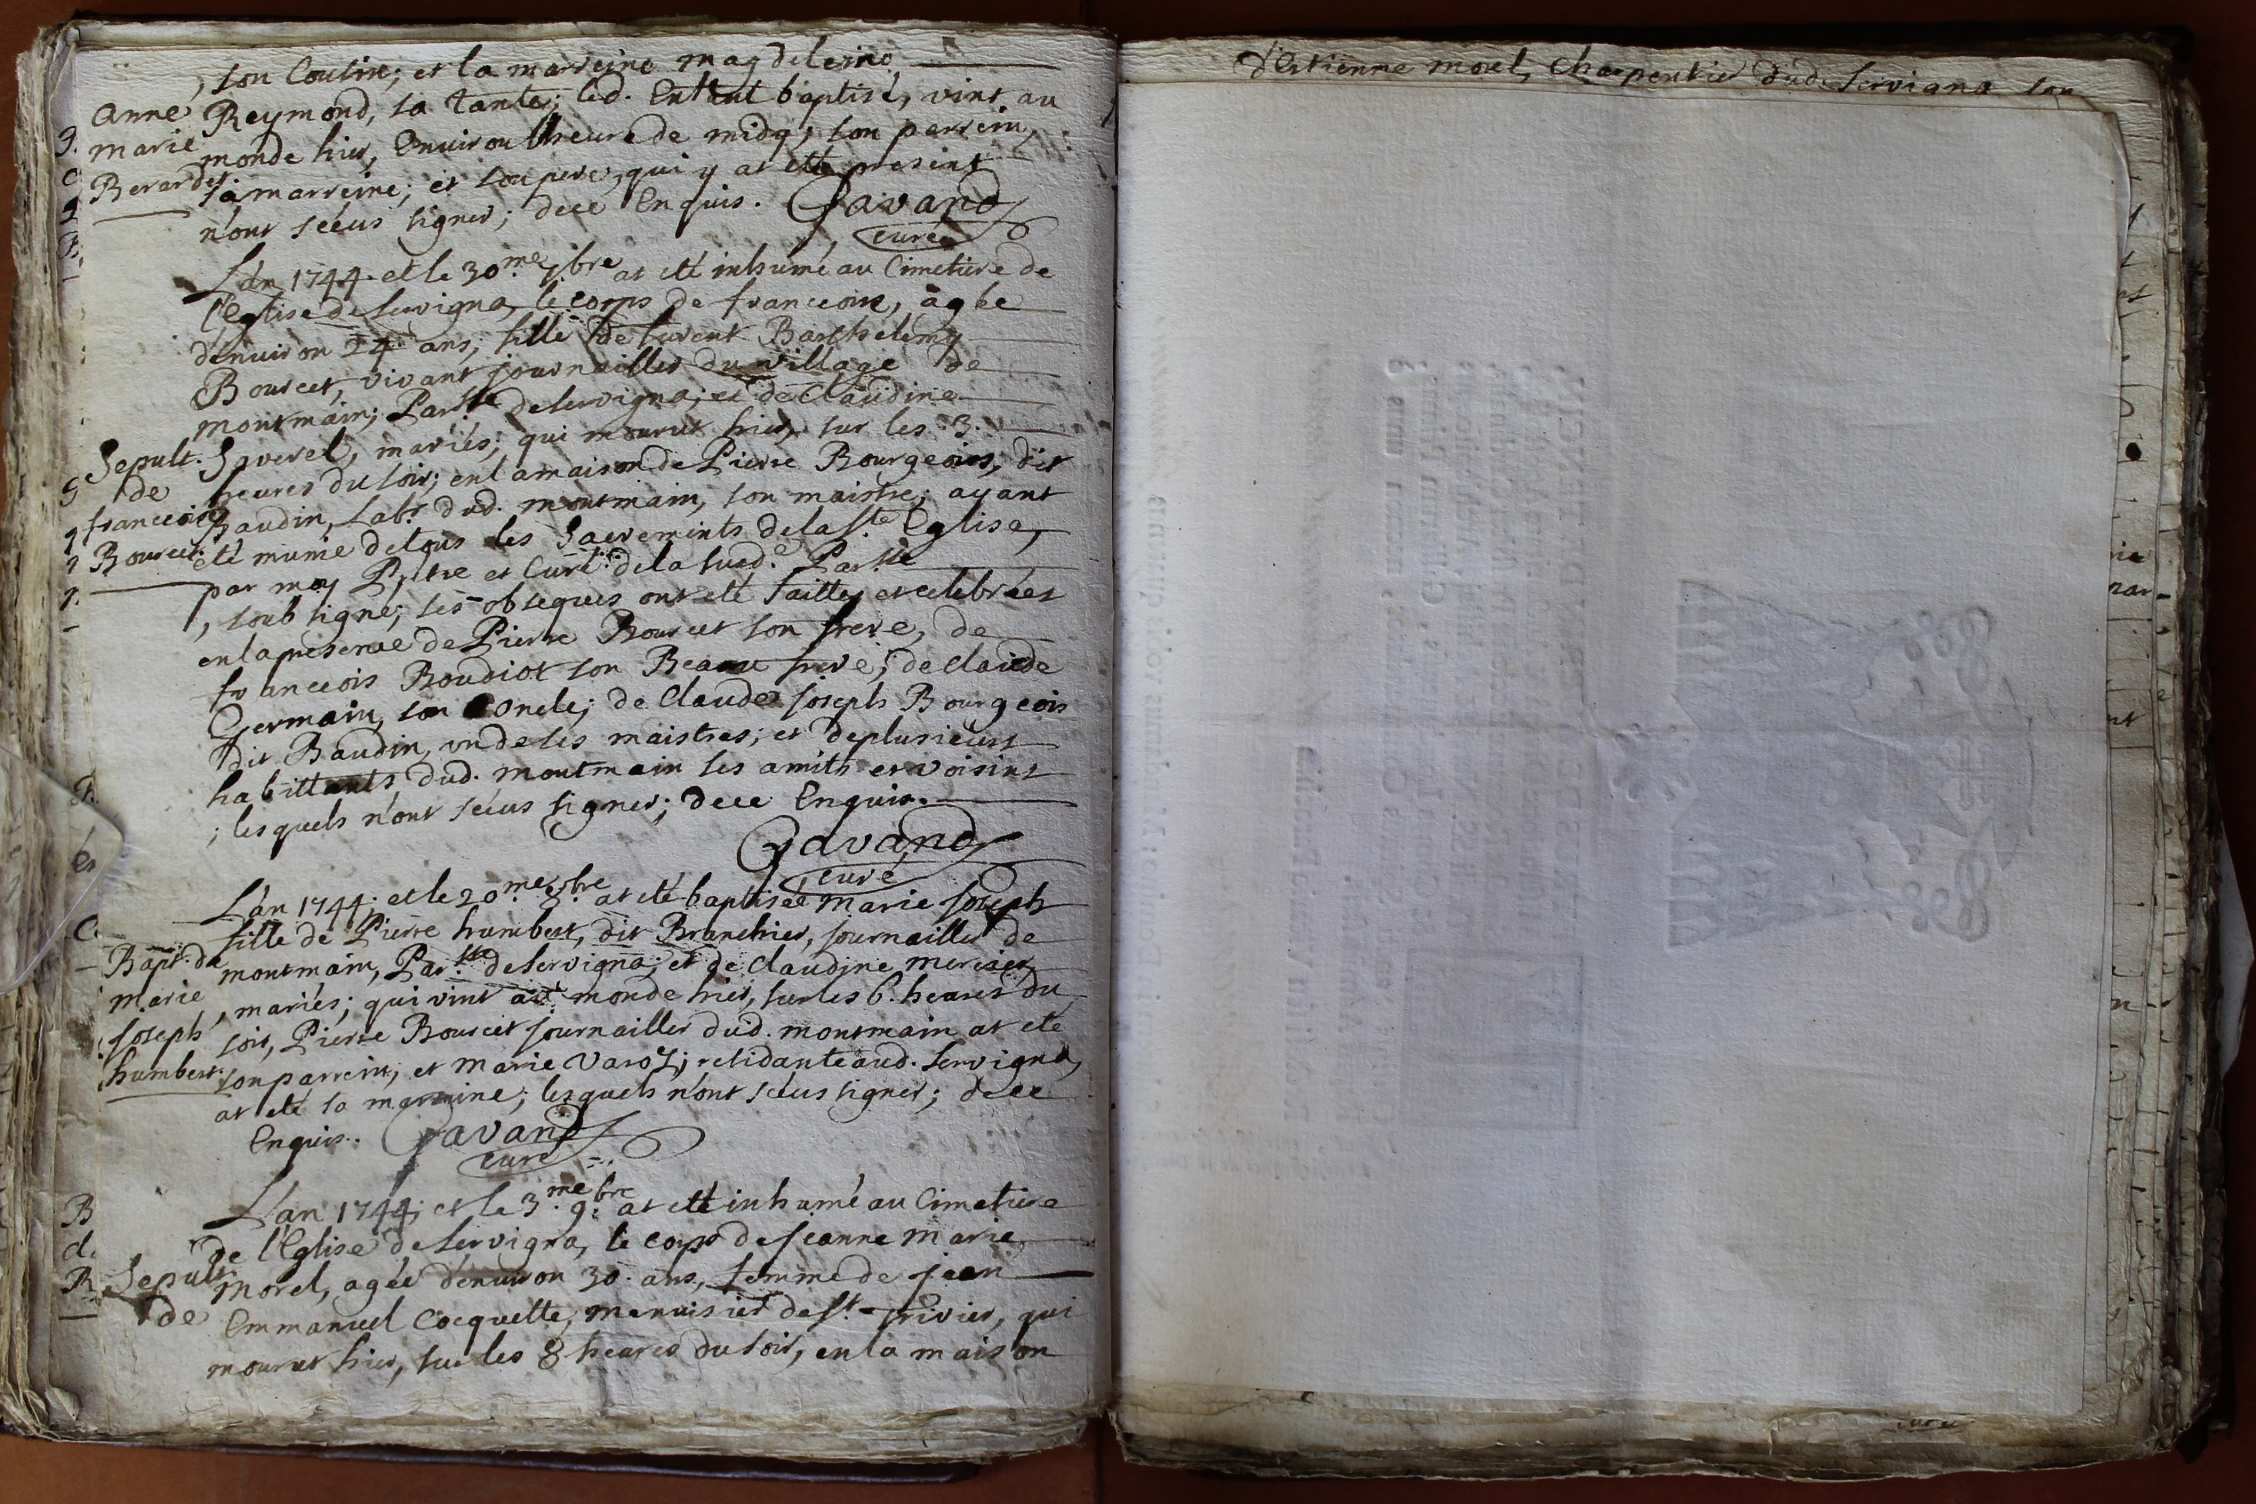 , son Cousin; et la marreine magdeleine
Anne Reymond, sa tante; led. Enfant baptisé, vint au
marie monde hier, Environ lheure de midy; son parrein,
Berardet. sa marreine; et son pere, qui y at été present
n'ont sçeus signer; dece Enquis. Gavand
curé
L'an 1744. et le 30.me 7.bre at été inhumé au Cimetiere de
l'Eglise de Servigna, le corps de francoise, agée
d'environ 24 ans; fille de furent Barthelemy
Bourcet, vivant journailler du village de
montmain; Par.sse de Servigna; et de Claudine
Sepult. Saverel, mariés; qui mourut hier, sur les 3.
de heures du soir; en la maison de Pierre Bourgeois, dit
francoise Baudin, Lab.r dud. montmain, son maistre; ayant
Bourcet. été munie de tous les Sacrements de la S.te Eglise,
par moy P.tre et Curé de la sud.e Par.sse
, soub signé; ses obseques ont été faittes et celebrées
en la presence de Pierre Bourcet son frere, de
francois Boudiot son Beau frere; de claude
Germain, son oncle; de Claude joseph Bourgeois
dit Baudin, un de ses maistres; et de plusieurs
habittants dud. montmain ses amits et voisins
; lesquels n'ont sçeus signer; dece Enquis.
Gavand
curé
L'an 1744; et le 20.me 8.bre at été baptisée Marie joseph
fille de Pierre humbert, dit Branchier, journailler de
Bapt. de montmain, Par.sse de Servigna; et de Claudine mercier
marie , mariés; qui vint au monde hier, sur les 6. heures du
joseph soir, Pierre Bourcet journailler dud. montmain at été
humbert. son parrein; et marie Varoz; residante aud. Servigna,
at été sa marreine; lesquels n'ont sçeus signer; dece
Enquis. Gavand
curé
L'an 1744; et le 3.me 9.bre at été inhumé au Cimetiere
de l'Eglise de Servigna, le corps de jeanne marie
Sepult. morel, agée d'environ 30. ans, femme de jean
de Emmanuel Cocquette, menuisier de S.t Trivier, qui
mourut hier, sur les 8 heures du soir, en la maison
d'Estienne morel, Charpentier dud. Servigna son